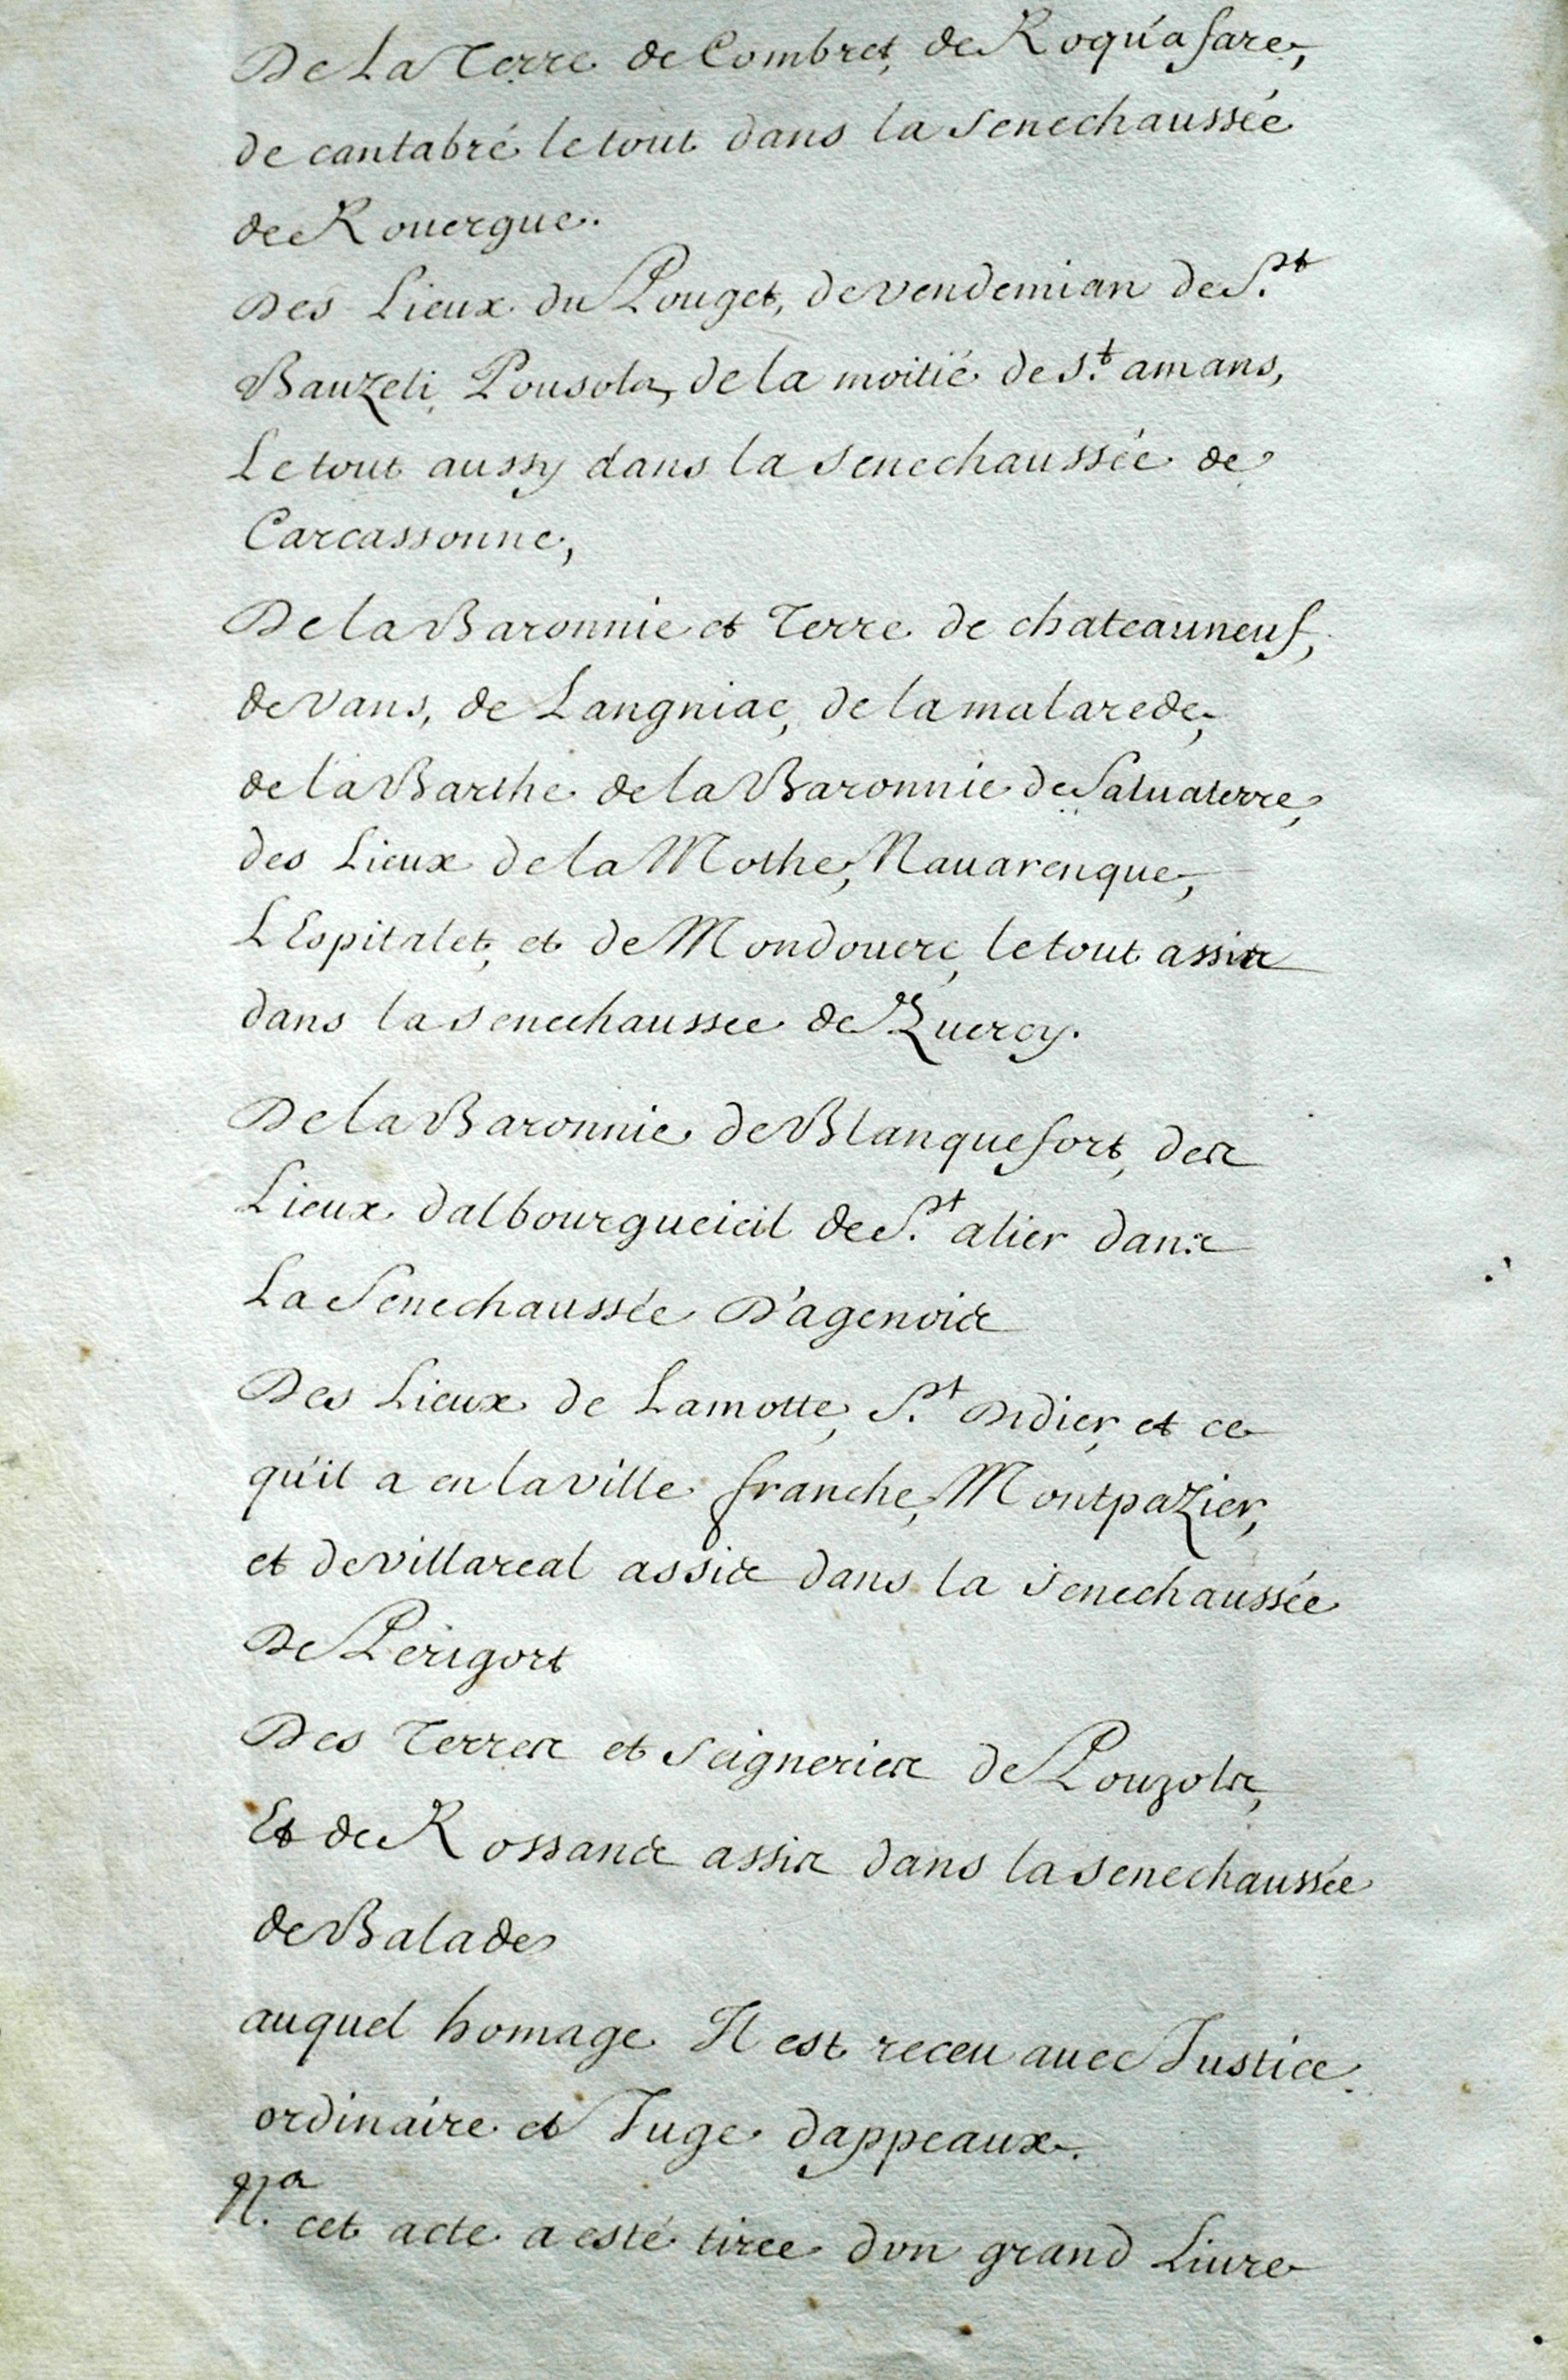 De La Terre de Combret, de Roqu'a fare,
de cantabré le tout dans la senechaussée
de Rouergue.
Des Lieux du Pouget, de vendemian de S.t
Bauzeli, Pousols, de la moitié de s.t amans,
Le tout aussy dans la senechaussée de
Carcassonne,
De la Baronnie et Terre de chateauneuf,
de vans, de Langniac, de la malarede,
de la Barthe de la Baronnie de Saluaterre,
des Lieux de la Mothe, Nauarenque,
L'Espitalet, et de Mondouerc, le tout assis
dans la senechaussee de Quercy.
De la Baronnie de Blanquefort, des
Lieux dalbourgueieil de S.t alier dans
La Senechaussée D'agenois
Des Lieux de Lamotte, S.t Didier, et ce
qu'il a en la ville franche, Montpazier,
et de villareal assis dans la senechaussée
De Perigort
Des Terres et seigneries de Pouzols,
Et de Rossans assis dans la senechaussée
de Balades
auquel homage Il est receu auec Justice
ordinaire et Juge dappeaux.
N.a cet acte a esté tirée d'vn grand Liure